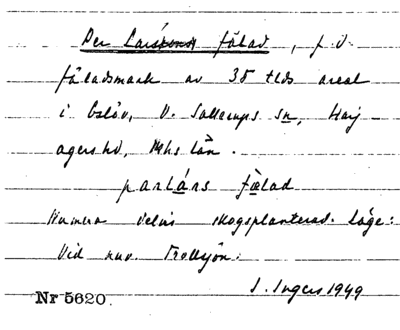 Per Larssons fälad, f.d.
fäladsmark av 35 tlds areal
i Oslöv, V. Sallerups sn, Harj-
agers hd, Mhs län.
parlárs fælad
Numera delvis skogsplanterad. Läge:
Vid nuv. Trollsjön.
I. Ingers 1949
Nr 5620.